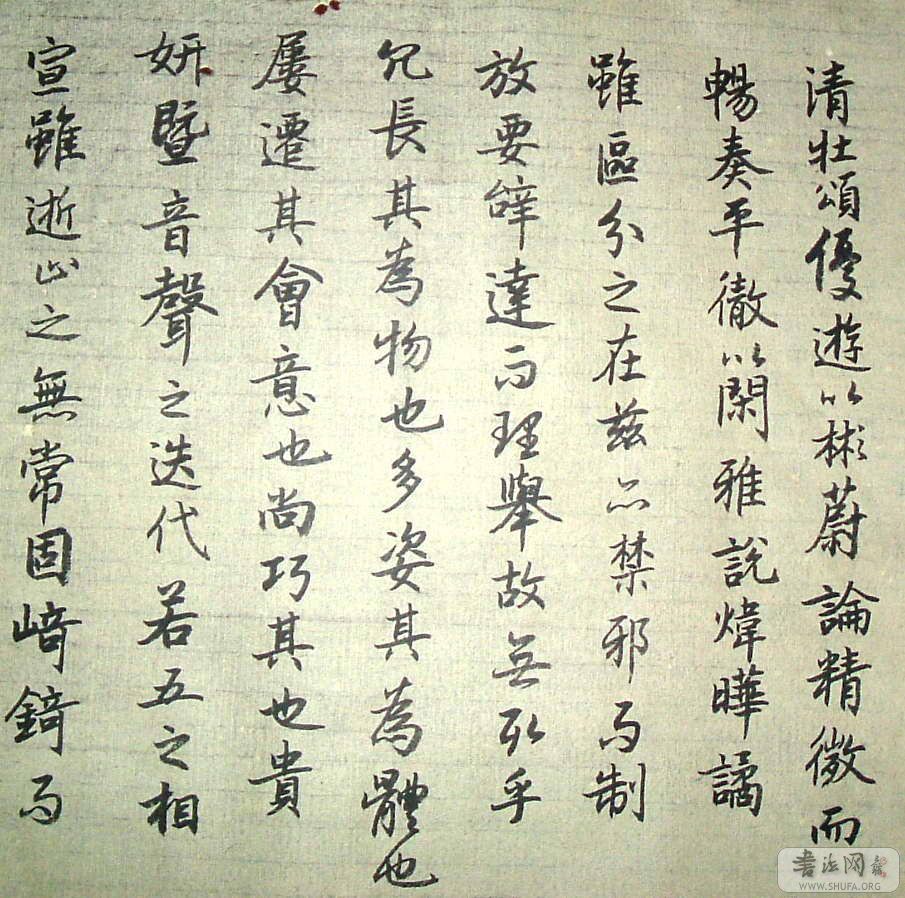 清壮頌優遊以彬蔚論精微而
暢奏平徹以閑雅說煒曄譎
雖區分之在茲亦禁邪而制
放要辞達而理舉故無取乎
冗長其為物也多姿其為體也
屢遷其會意也尚巧其也貴
妍暨音聲之迭代若五之相
宣雖逝止之無常固崎錡而
書法网
WWW.SHUFA.ORG